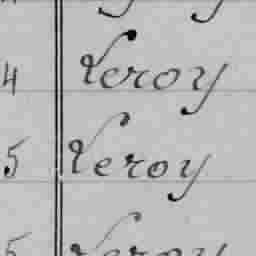 4 Leroy
5 Leroy
5 Leroy